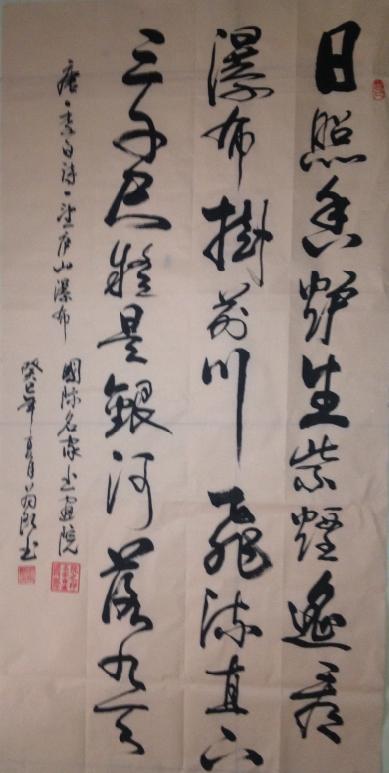 日照香炉生紫煙遙看
瀑布掛前川飛流直下
三千尺疑是銀河落九天
唐、李白诗、望庐山瀑布
國际名家书画院
癸巳年夏月书